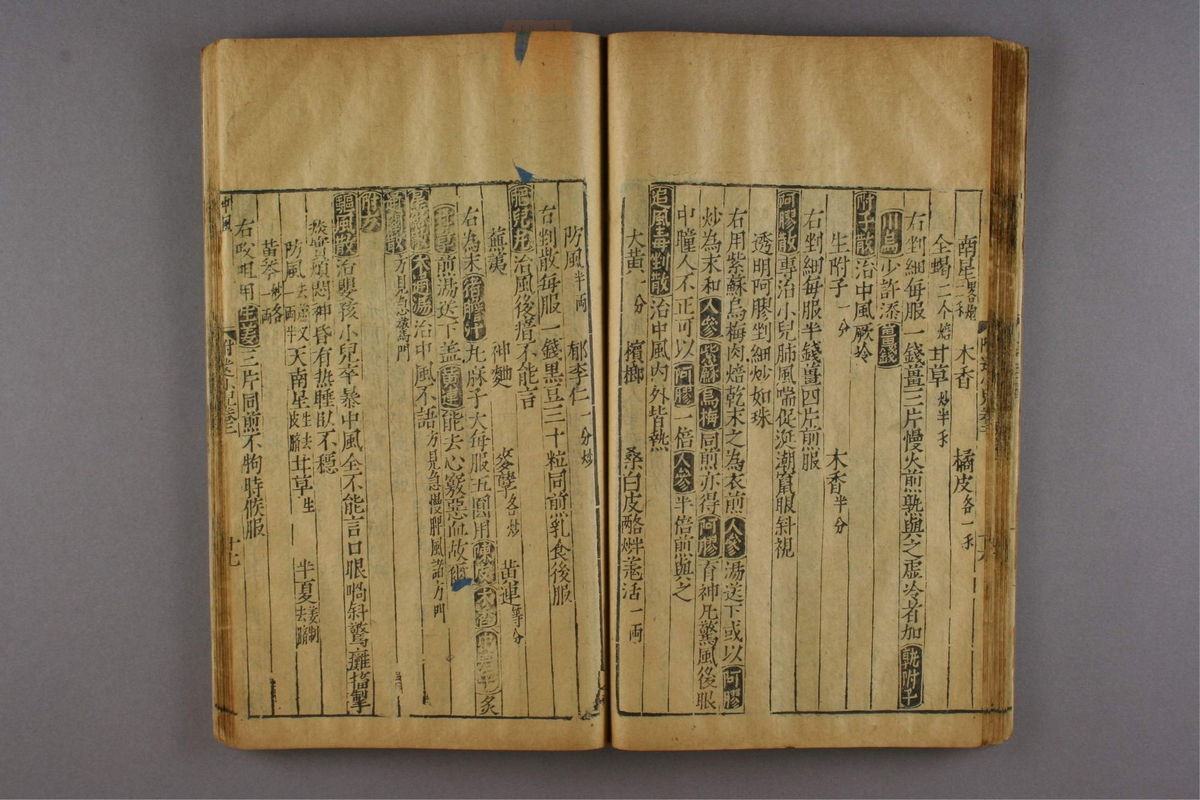 南星 木香 橘皮各一
全蝎二个焙 甘草炒半
右剉細每服一錢薑三片慢火煎熟與之虛冷者加熟附子
川烏少許添薑錢
附子散治中風厥冷
生附子一分 木香半分
右剉細每服半錢薑四片煎服
阿膠散專治小兒肺風喘促涎潮竄眼斜視
透明阿膠剉細炒如珠
右用紫蘇烏梅肉焙乾末之為衣煎人參湯送下或以阿膠
炒為末和人參紫蘇烏梅同煎亦得阿膠育神凡驚風後眼
中瞳人不正可以阿膠一倍人參半倍煎與之
追風毒剉散治中風內外皆熱
大黃一分 檳榔 桑白皮 羗活一兩
防風半兩 郁李仁一分炒
右剉散每服一錢黑豆三十粒同煎乳食後服
肥兒丸治風後瘖不能言
蕪荑 神麯 麥糱各炒 黃連等分
右為末猪膽汁丸麻子大每服五圓用
煎湯送下盖黃連能去心竅惡血故爾
木通湯治中風不語方見急慢脾風諸方門
方見急驚門
附方
驅風散治嬰孩小兒卒暴中風全不能言口眼喎斜驚癱搐掣
痰實煩悶神昏有热睡臥不穩
防風一兩 天南星生去皮臍 甘草生 半夏
黃芩
右㕮咀用生姜三片同煎不拘時候服
十七